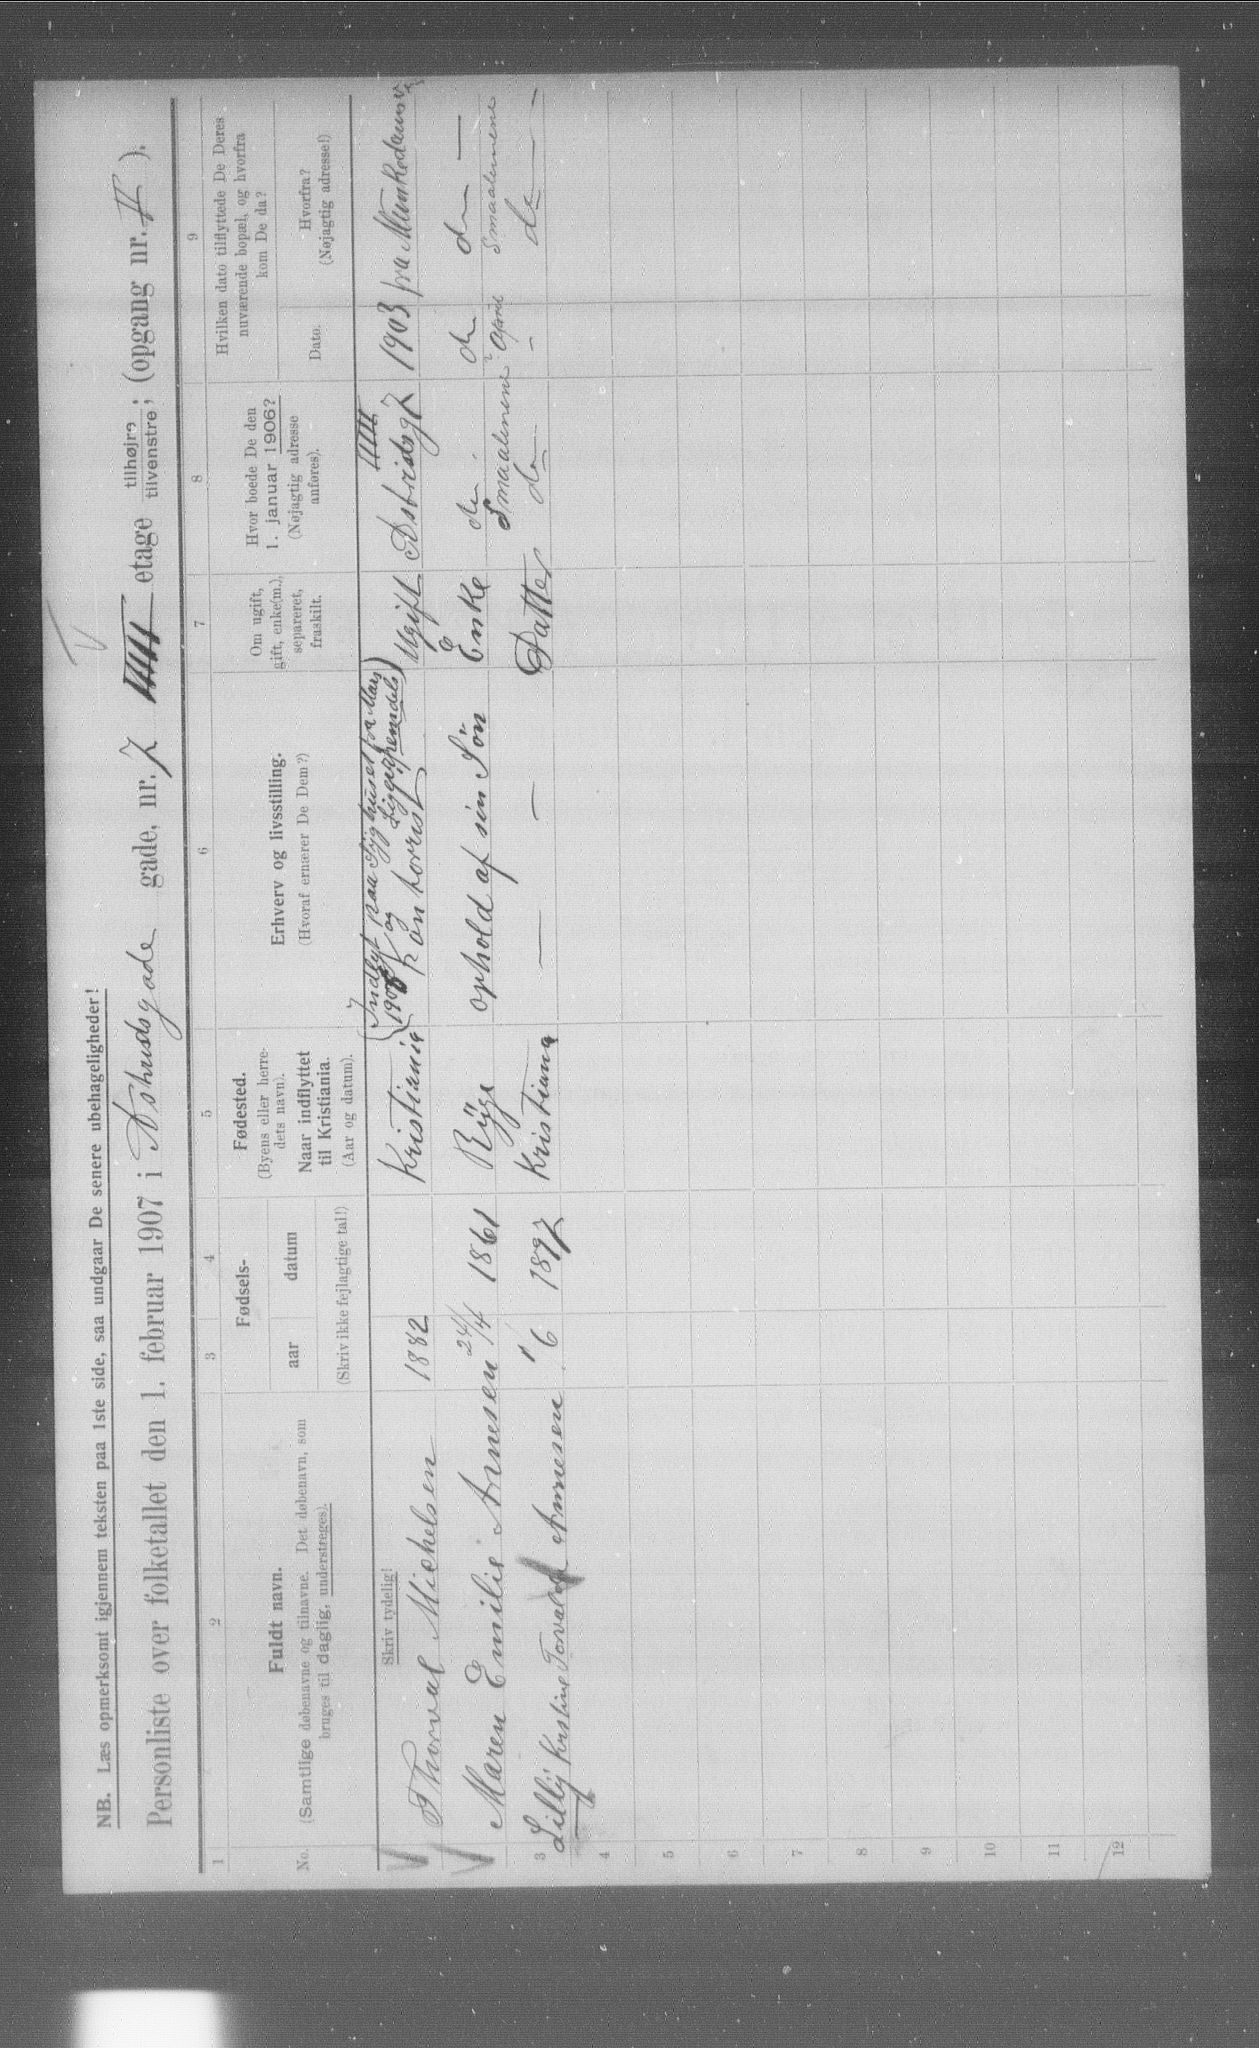 NB. Læs opmerksomt igjennem teksten paa 1ste side, saa undgaar De senere ubehageligheder!
Personliste over folketallet den 1. februar 1907 i Astridsgade gade, nr. 7 IIII etage tilhøjre tilvenstre; (opgang nr. II).
1 2 3 4 5 6 7 8 9
No.
Fuldt navn.
(Samtlige døbenavne og tilnavne. Det døbenavn, som
bruges til daglig, understreges).
Fødsels-
aar datum
(Skriv ikke fejlagtige tal!)
Fødested.
(Byens eller herre-
dets navn).
Naar indflyttet
til Kristiania.
(Aar og datum).
Erhverv og livsstilling.
(Hvoraf ernærer De Dem?)
Om ugift,
gift, enke(m.),
separeret,
fraskilt.
Hvor boede De den
1. januar 1906?
(Nøjagtig adresse
anføres).
Hvilken dato tilflyttede De Deres
nuværende bopæl, og hvorfra
kom De da?
Dato.
Hvorfra?
(Nøjagtig adresse!)
Skriv tydelig!
Indlagt paa Sÿghuset fra Mars
1906 og ligger fremdels
Thorval Michelsen 1882 Kristiania Kontorrist Ugift Astridsg 7 IIII 1903 fra Munkedamsv
Maren Emilie Arnesen 24/4 1861 Rÿge ophold af sin Søn Enke do do do —
Smaalenene April Smaalenene
Lillÿ Kristine Torvalda Arnesen 1/6 1897 Kristiania — — Datter do — do —
3
4
5
6
7
8
9
10
11
12